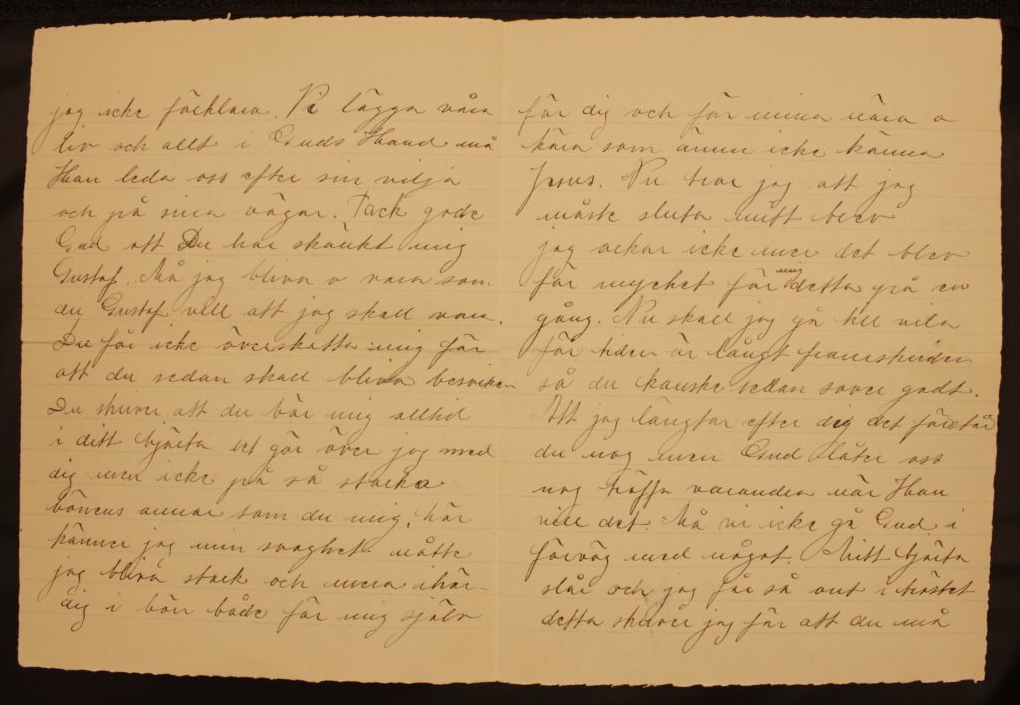 jag icke förklara. Vi lägga våra
liv och allt i Guds Hand må
Han leda oss efter sin vilja
och på sina vägar. Tack gode
Gud att Du har skänkt mig
Gustaf. Må jag bliva o vara som
du Gustaf vill att jag skall vara.
Du får icke överskatta mig för
att du sedan skall bliva besviken
Du skriver att du bär mig alltid
i ditt hjärta det gör även jag med
dig men icke på så starka
bönens armar som du mig, här
känner jag min svaghet måtte
jag bliva stark och mera ihär-
dig i bön både för mig själv
för dig och för mina nära o
kära som ännu icke känna
Jesus. Nu tror jag att jag
måste sluta mitt brev
jag orkar icke mer det blev
för mycket för mig detta på en
gång. Nu skall jag gå till vila
för tiden är långt framskriden
så du kanske redan sover godt.
Att jag längtar efter dig det förstår
du nog men Gud låter oss
nog träffa varandra när Han
vill det. Må vi icke gå Gud i
förväg med något. Mitt hjärta
slår och jag får så ont i bröstet
detta skriver jag för att du må